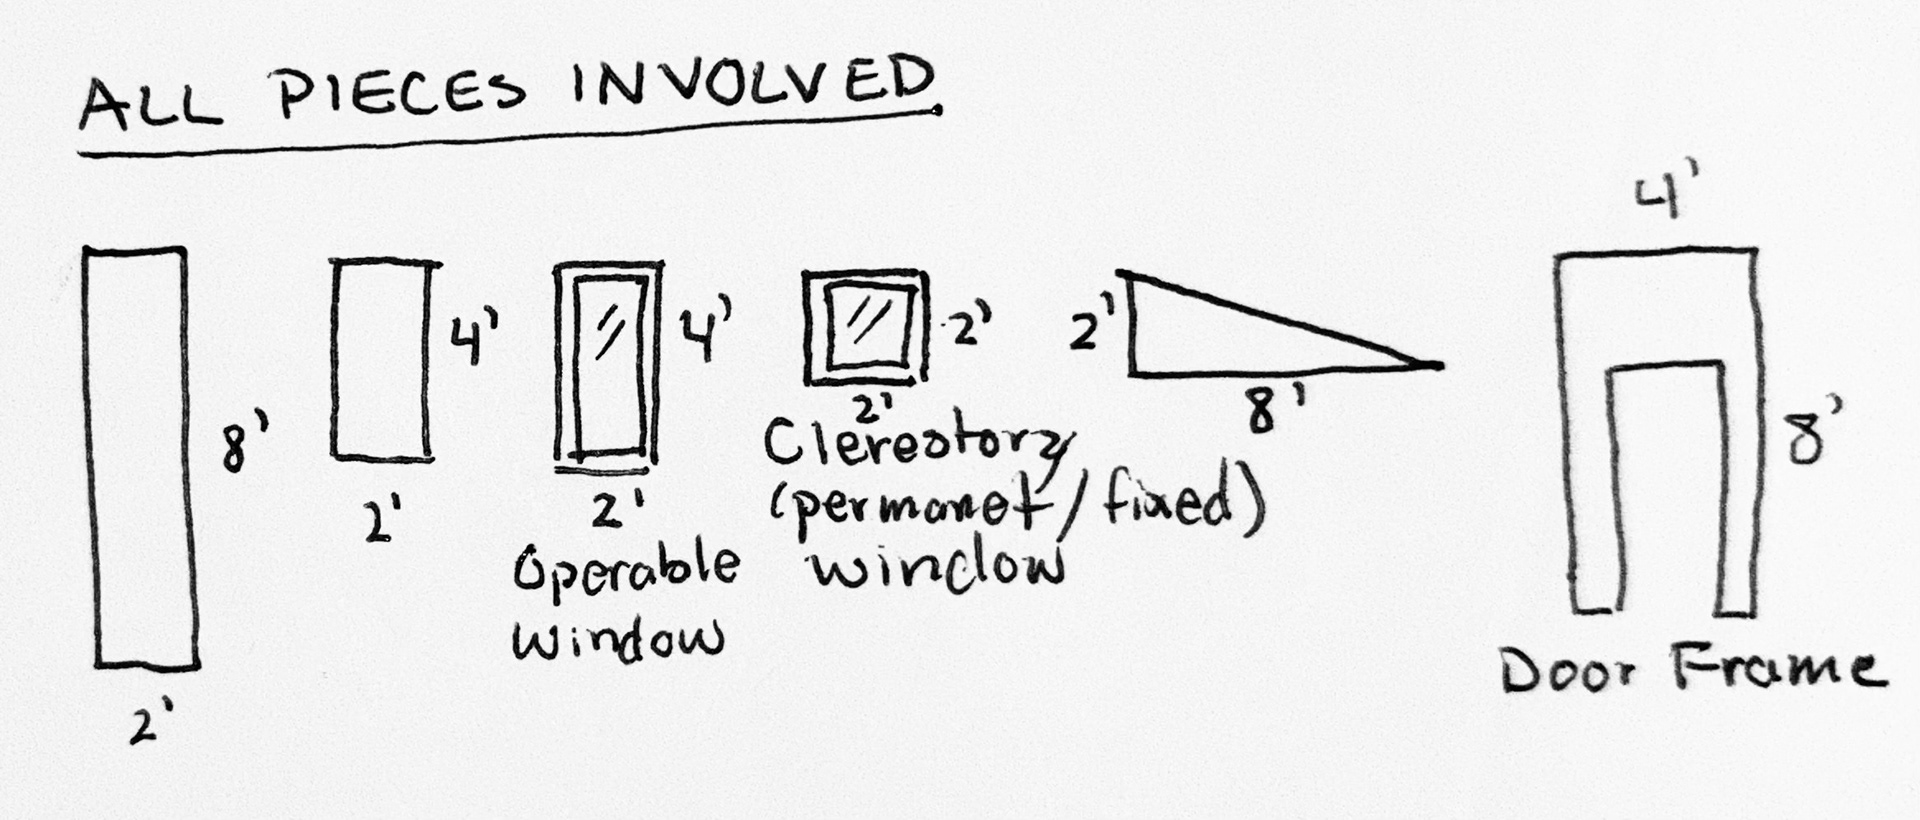 ALL PIECES INVOLVED
8'
2'
4'
2'
4'
2'
Operable
window
2'
2'
Clerestory
(permanet/fixed)
window
2'
8'
4'
8'
Door Frame